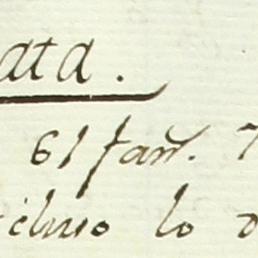 ata.
61 fan̄. 7
cluso lo d